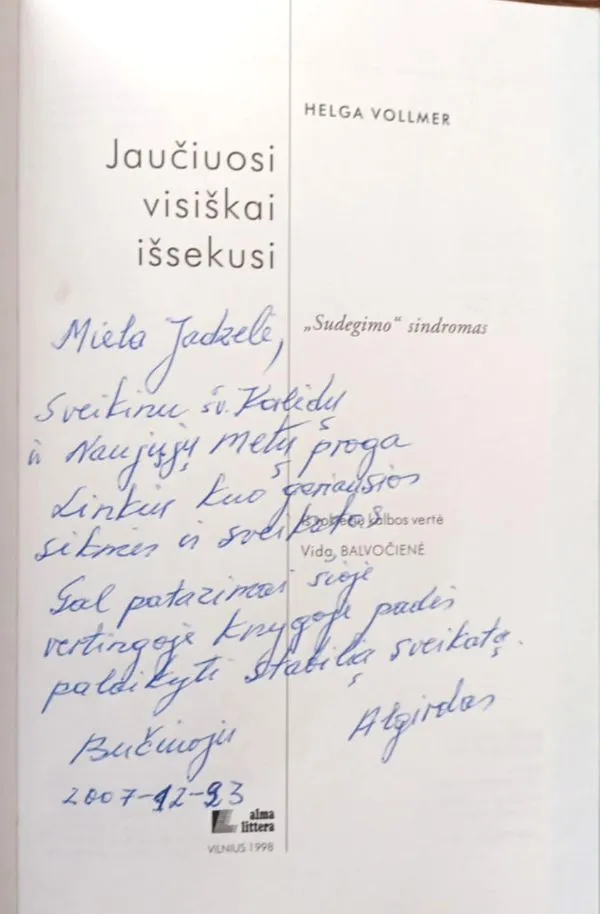 HELGA VOLLMER
Jaučiuosi
visiškai
išsekusi
„Sudegimo“ sindromas
Miela Jadzele,
Sveikinu šv. Kalėdų
ir Naujųjų metų proga
Linkiu kuo geriausios
sėkmės ir sveikatos
Iš vokiečių kalbos vertė
Vida BALVOČIENĖ
Gal patarimai šioje
vertingoje knygoje padės
palaikyti stabilią sveikatą.
Algirdas
Bučiuoju
2007-12-23
alma
littera
VILNIUS 1998